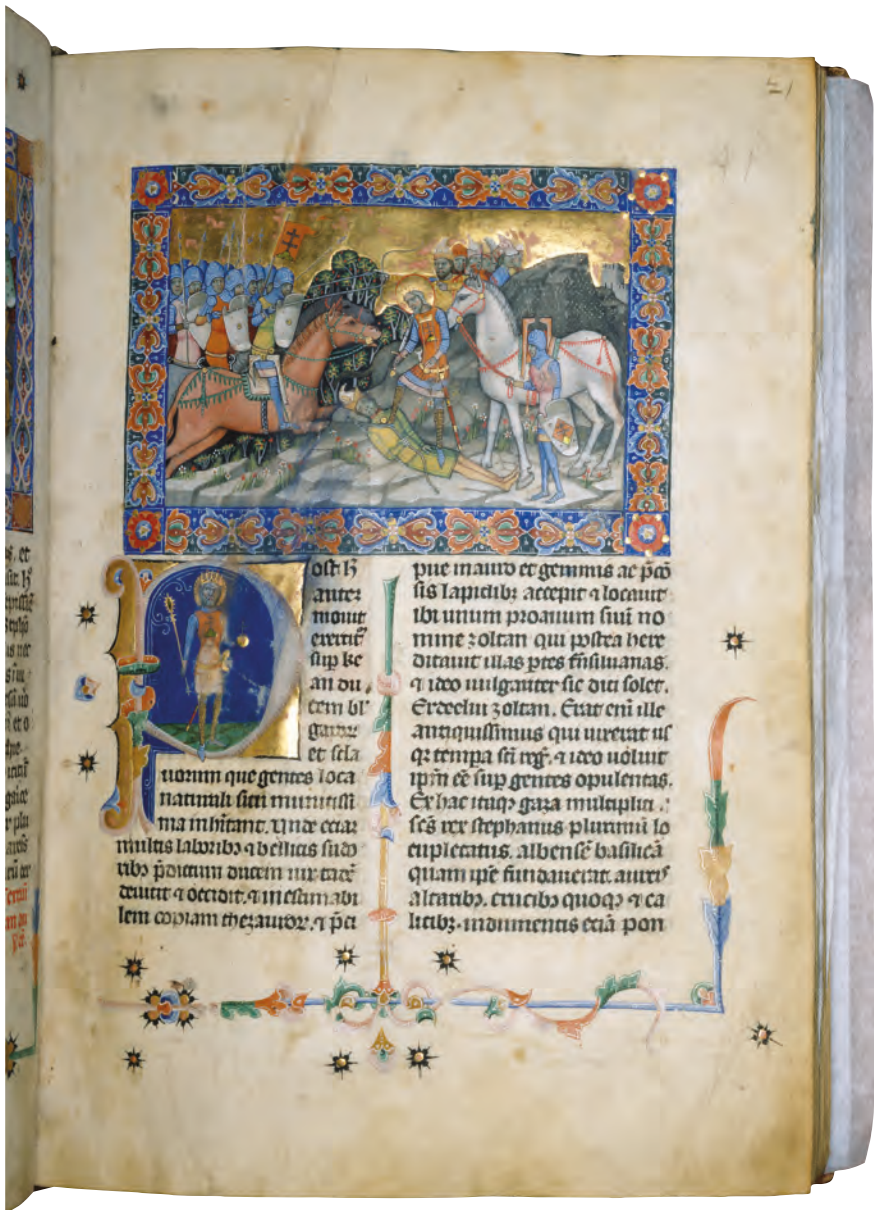 21
ost h
autem
mouit
exercitū
sup ke
an du
cem bl'
garor
et scla
uorum que gentes loca
naturali situ munitissi
ma inhitant. Unde eciam
multis laboribȝ ⁊ bellicis sudo
ribȝ p̄dictum ducem uix tandē
deuicit ⁊ occidit. ⁊ inestimabi
lem copiam thezauror. ⁊ p̄ci
pue in auro et gemmis ac p̄cō
sis lapidibȝ accepit ⁊ locauit
ibi unum proauum suū no
mine zoltan qui postea here
ditauit illas p̄tes t̄nsiluanas.
⁊ ideo uulgariter sic dici solet.
Erdeelui zoltan. Erat eni ille
antiquissimus qui uixerat us
qȝ tempa sc̄i reg. ⁊ ideo uoluit
ip̄m eē sup gentes opulentas.
Ex hac itaqȝ gaza multiplici
sc̄s rex stephanus plurimū lo
cupletatus. albensē basilicā
quam ip̄e fundauerat. aureis
altaribȝ. crucibȝ quoqȝ ⁊ ca
licibȝ. indumentis eciā pon